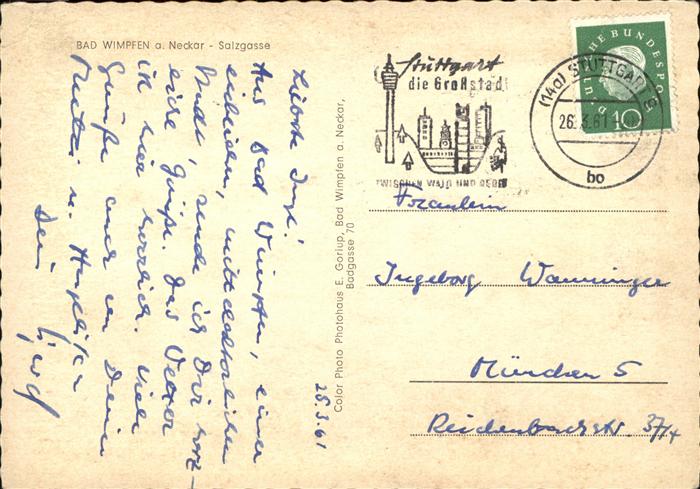 BAD WIMPFEN a. Neckar - Salzgasse
Liebste Inge!
Aus Bad Wimpfen, einer
mittelalterlichen
Stadt, sende ich Dir herz-
liche Grüße. Das Wetter
ist hier herrlich. Viele
Grüße auch an Deine
Mutter u.
Dein
28.3.61
Color Photo Photohaus E. Goriup, Bad Wimpfen a. Neckar,
Badgasse 70
Stuttgart
die Großstadt
ZWISCHEN WALD UND REBEN
(14a) STUTTGART 9
26.3.61
bo
DEUTSCHE BUNDESPOST
10
Fräulein
Ingeborg Wanninger
München 5
Reichenbachstr. 37/4